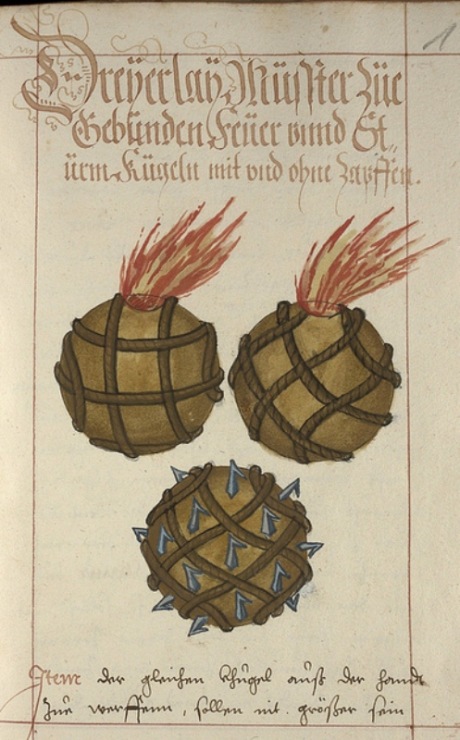 1
Dreyerlaÿ Müster züe
Gebünden Feüer vnnd St„
ürm Kügeln mit vnd ohne Zapffen.
Item der gleichen Khügel aüß der handt
züe werffenn, sollen nit größer sein